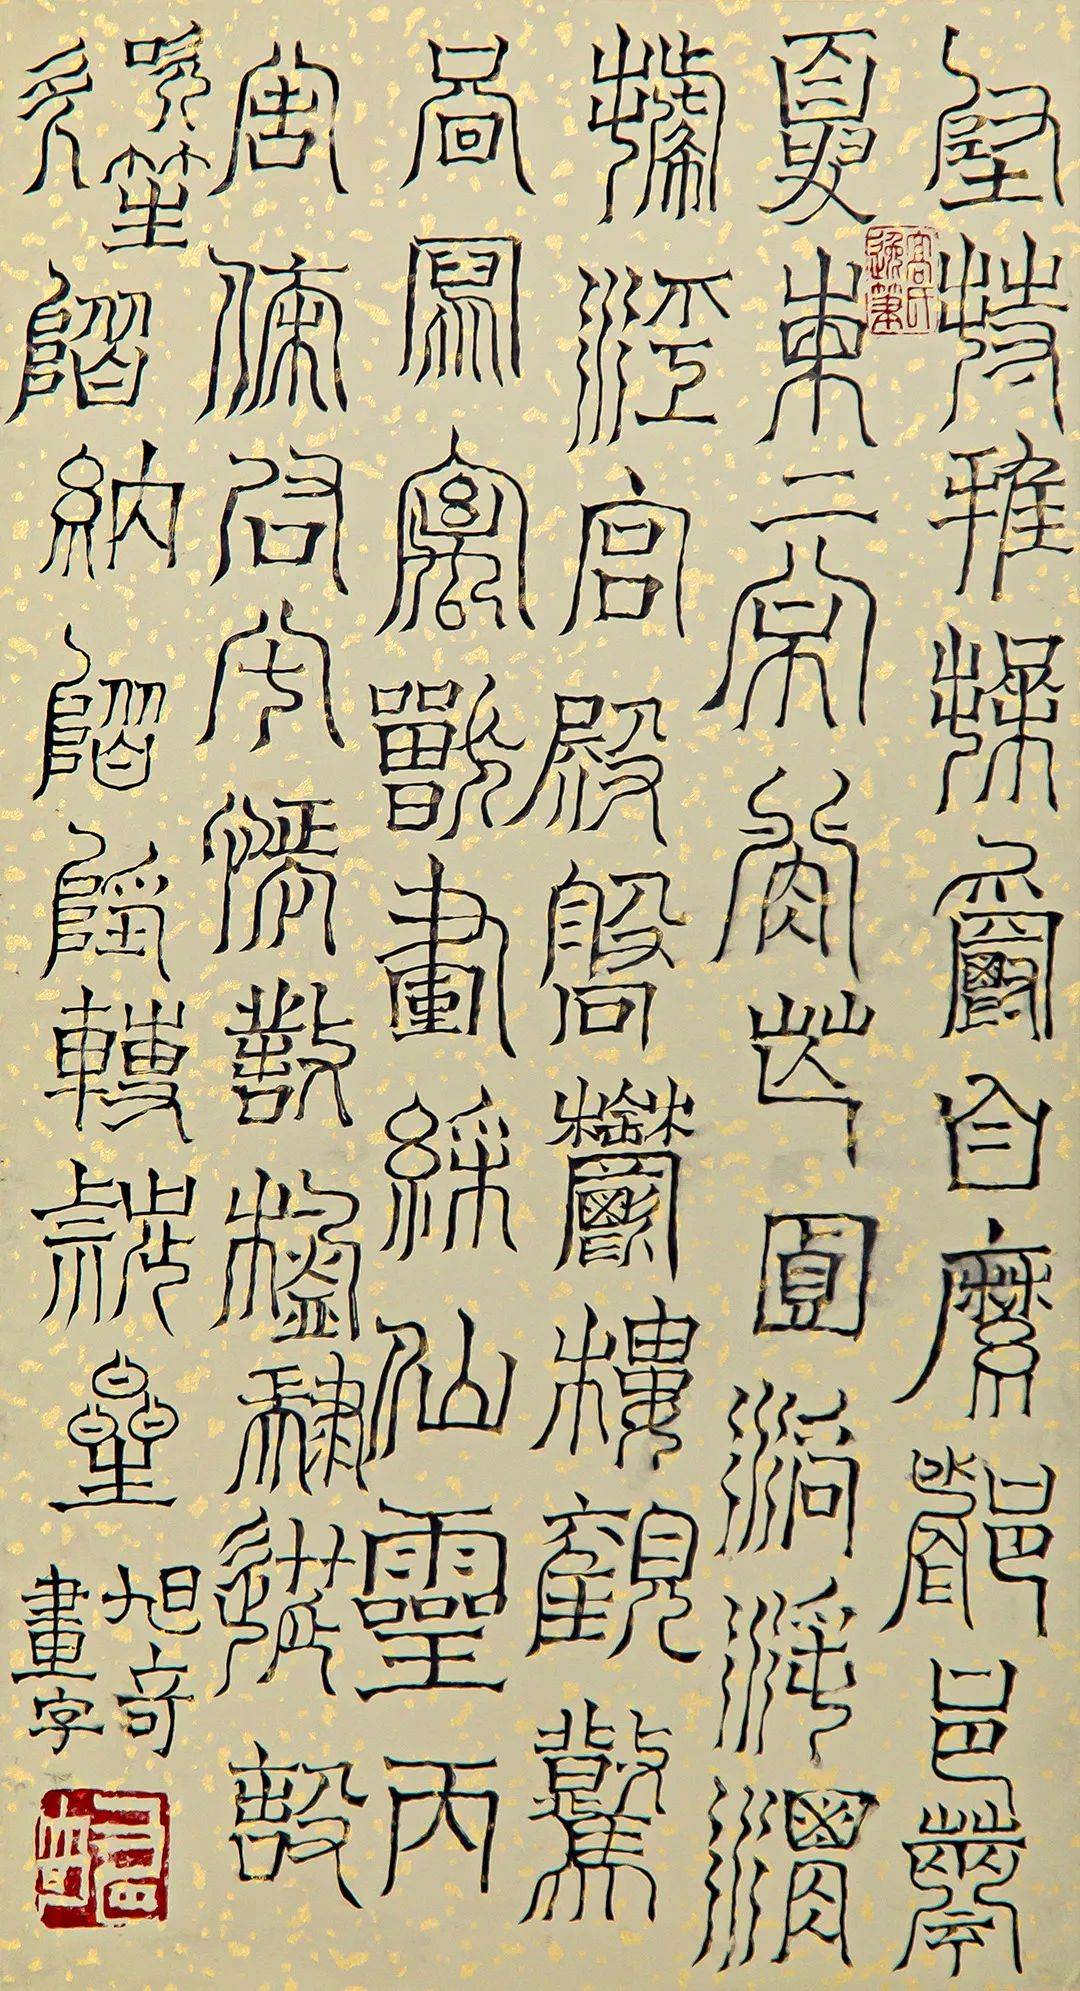 堅持雅操爵自縻都邑華
夏東二京背邙面洛浮渭
據涇宮殿盤鬱樓觀驚
圖寫禽獸畫綵仙靈丙
舍傍啟甲帳對楹肆筵設
吹笙階納陛轉疑星
旭奇
畫字